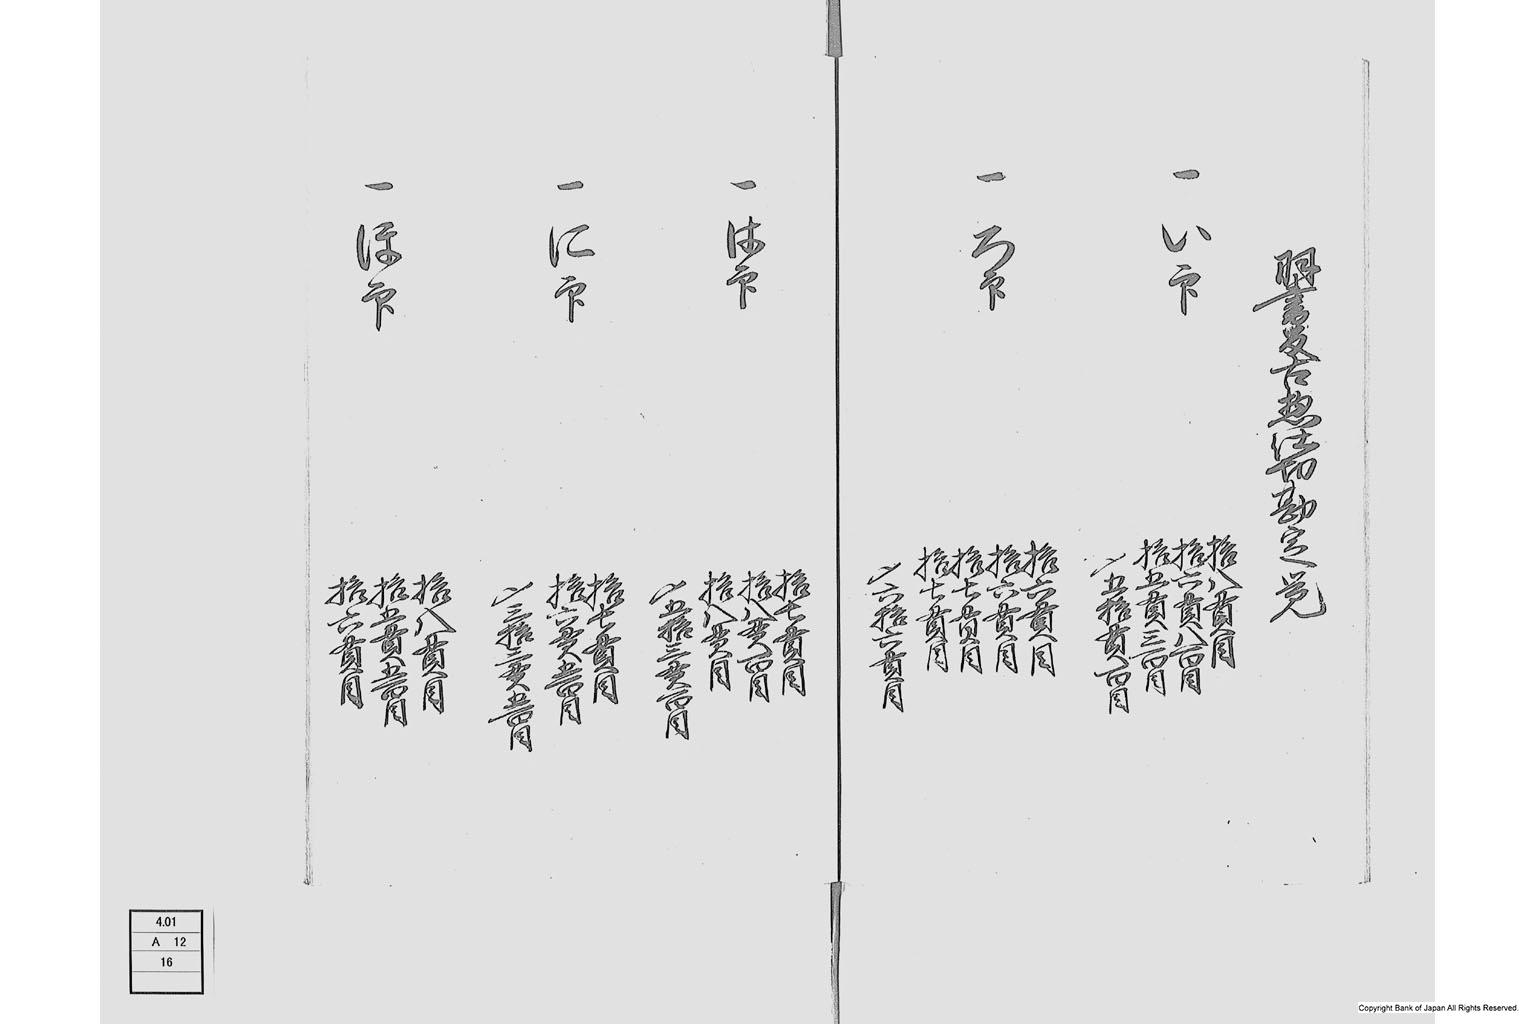 羽書反古惣仕切勘定覚
一 い印
拾八貫目
拾六貫八百目
拾五貫三百目
〆五拾貫百目
一 ろ印
拾六貫目
拾六貫目
拾七貫目
拾七貫目
〆六拾六貫目
一 は印
拾七貫目
拾八貫百目
拾八貫目
〆五拾三貫百目
一 に印
拾七貫目
拾六貫五百目
〆三拾三貫五百目
一 ほ印
拾八貫目
拾五貫五百目
拾六貫目
4.01
A 12
16
Copyright Bank of Japan All Rights Reserved.